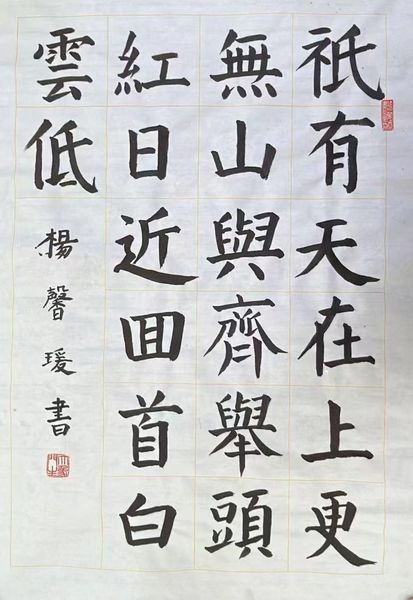 祇有天在上更
無山與齊舉頭
紅日近囬首白
雲低
楊馨瑗書